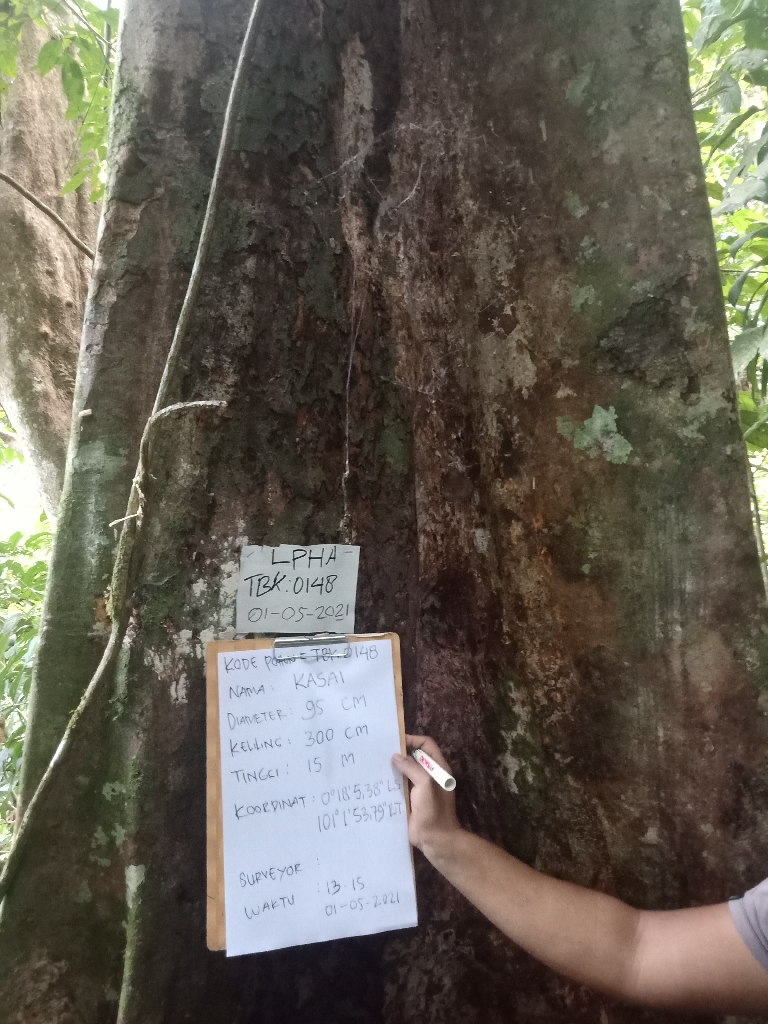 LPHA
TBK:0148
01-05-2021
KODE POHON = TBK 0148
NAMA : KASAI
DIAMETER : 95 CM
KELLING : 300 CM
TINGGI : 15 M
KOORDINAT : 0°18'5,38"
101°1'53,79"
SURVEYOR :
WAKTU : 13-15
01-05-2021